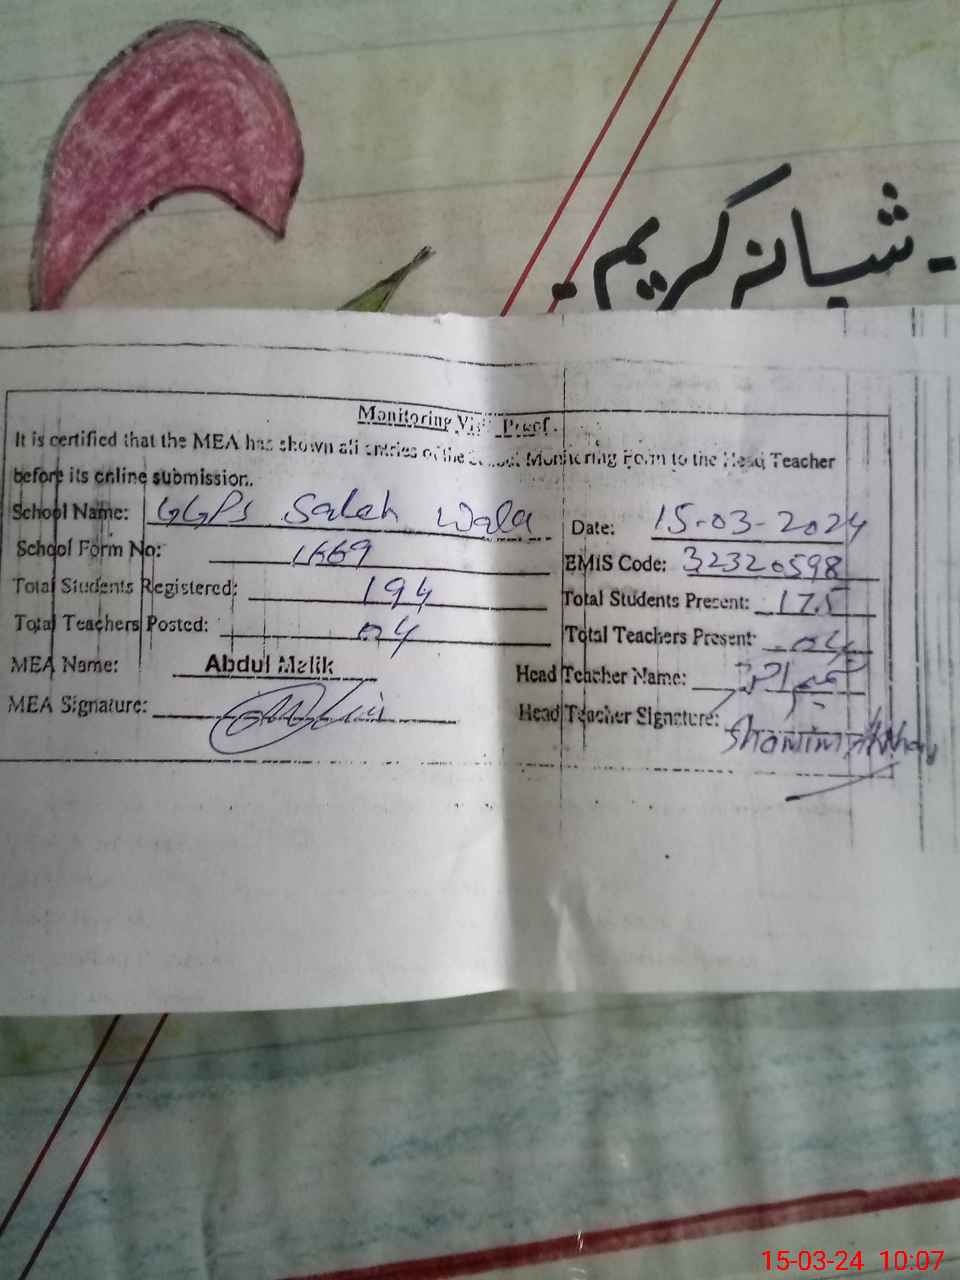 ۔ شبانہ کریم ۔
Monitoring Visit Proof
It is certified that the MEA has shown all entries of the School Monitoring Form to the Head Teacher
before its online submission.
School Name: GGPS Saleh Wala
Date: 15-03-2024
School Form No: 1669
EMIS Code: 32320598
Total Students Registered: 194
Total Students Present: 175
Total Teachers Posted: 04
Total Teachers Present: 04
MEA Name: Abdul Malik
Head Teacher Name:
MEA Signature:
Head Teacher Signature: Shamim Akhtar
15-03-24 10:07